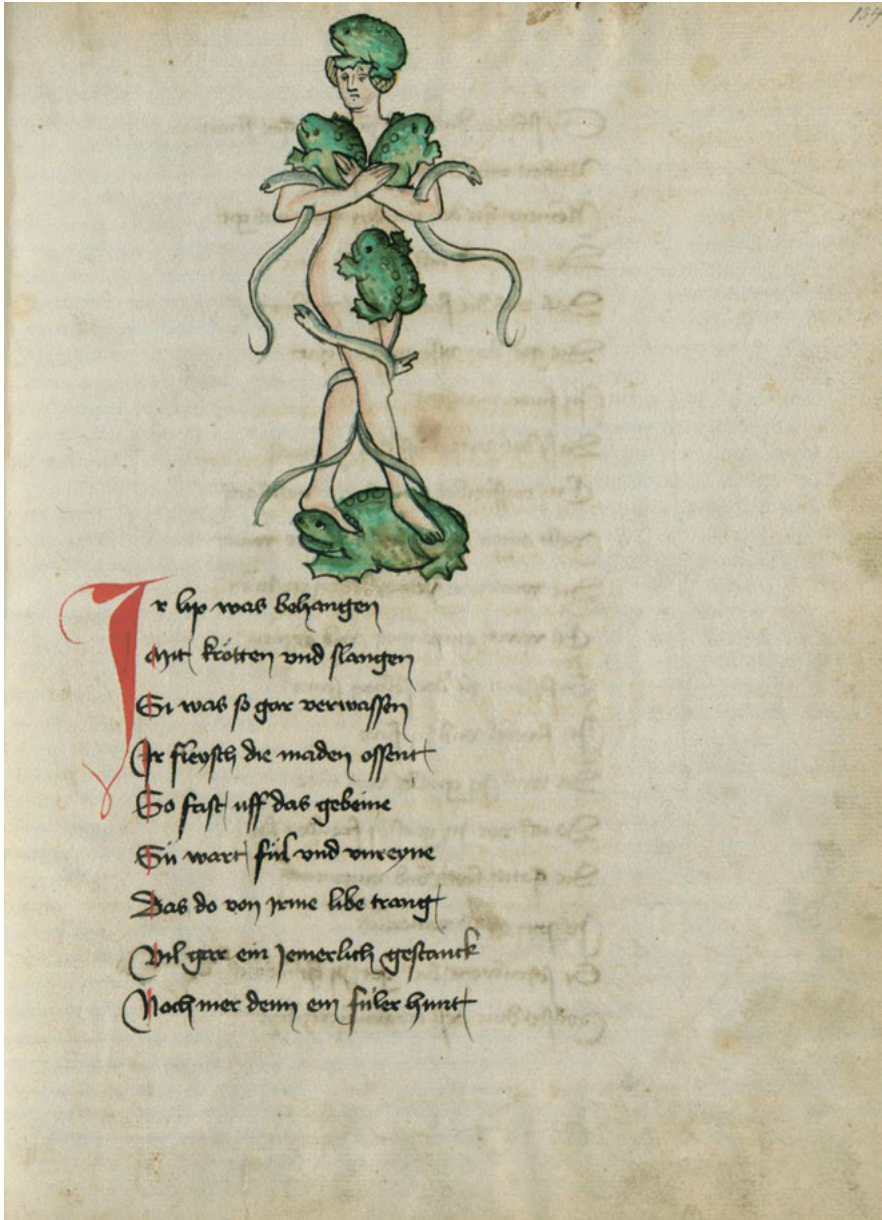 134
Ir lip was behangen
Mit krötten vnd slangen
Si was so gar verwassen
Ir fleysch die maden ossent
So fast uff das gebeine
Sü wart fúl vnd vnreyne
Das do von irme libe trang
Vil gar ein jemerlich gestanck
Noch mer denn ein fúler hunt